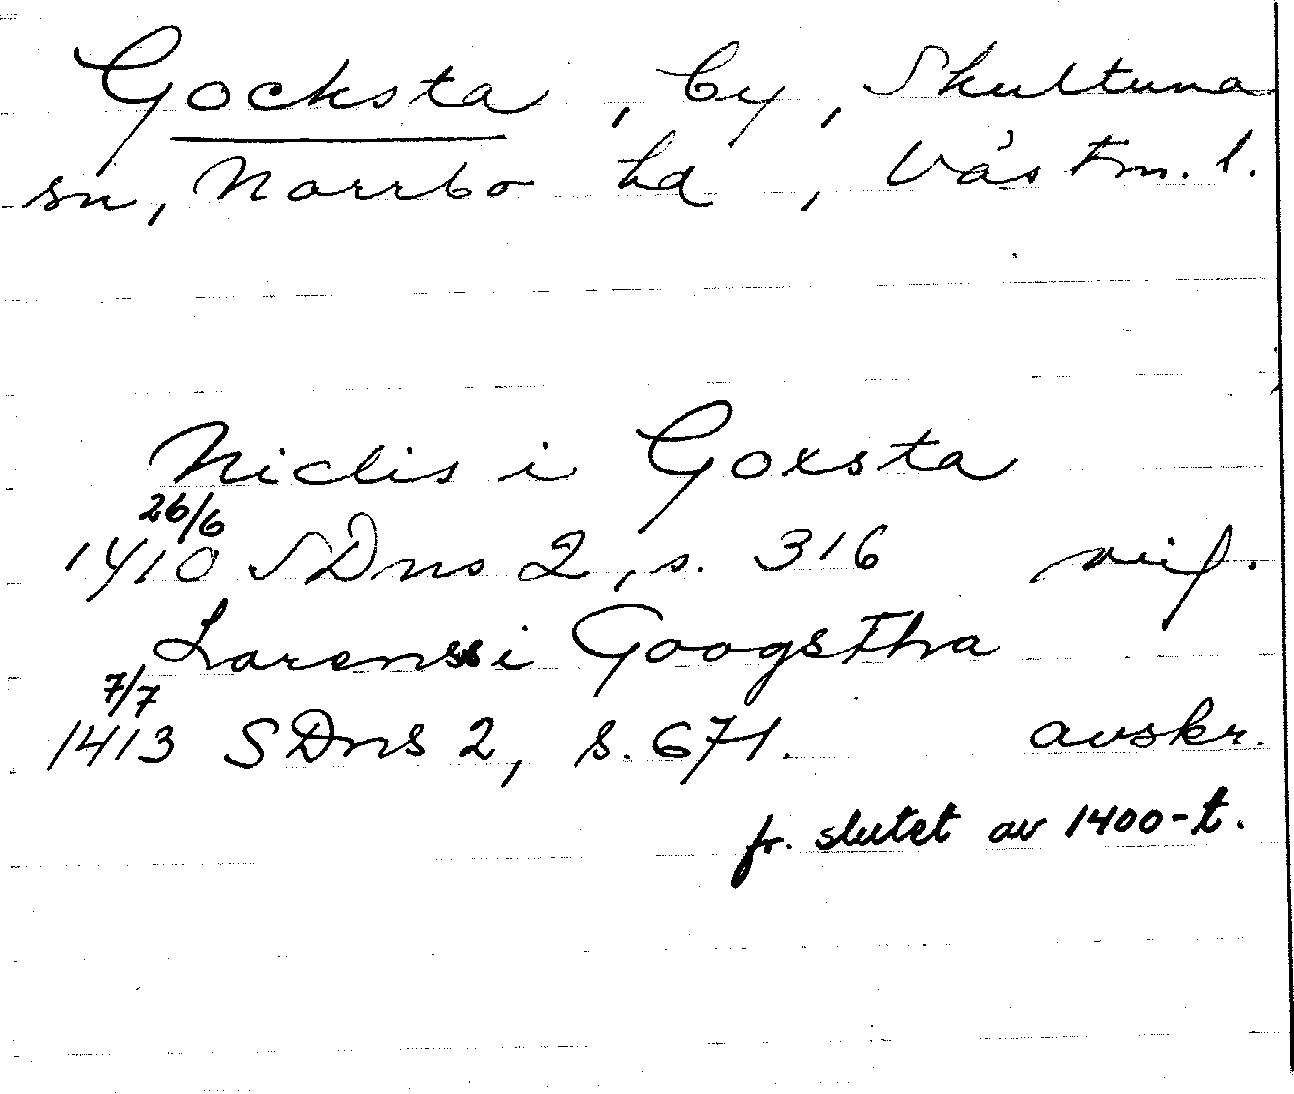 Gocksta, by, Skultuna
sn, Norrbo hd, Västm. l.
Niclis i Goxsta
26/6
1410 SDns 2, s. 316
Larenss i Googstha
7/7
1413 SDns 2, s. 671. avskr.
fr. slutet av 1400-t.